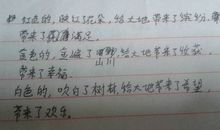 红色的，映红花朵，给大地带来了缤纷，
带来了满足。
蓝色的，蓝遍了山川，给大地带来了收获，
带来了幸福。
白色的，吹白了树林，给大地带来了希望，
带来了欢乐。